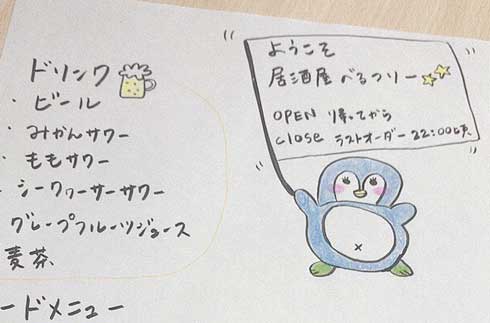 ドリンク
・ビール
・みかんサワー
・ももサワー
・シークヮーサーサワー
グレープフルーツジュース
麦茶
ードメニュー
ようこそ
居酒屋べるつリー
OPEN 帰ってから
close ラストオーダー 22:00頃